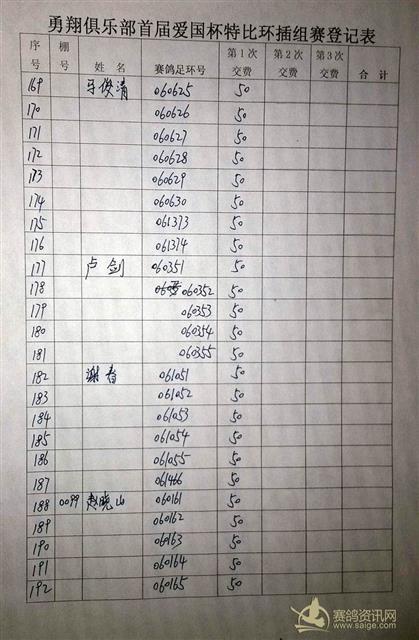 勇翔俱乐部首届爱国杯特比环插组赛登记表
序号 棚号 姓名 赛鸽足环号 第1次交费 第2次交费 第3次交费 合计
169 马俊清 060625 50
170 060626 50
171 060627 50
172 060628 50
173 060629 50
174 060630 50
175 061373 50
176 061374 50
177 卢剑 060351 50
178 060352 50
179 060353 50
180 060354 50
181 060355 50
182 谢春 061051 50
183 061052 50
184 061053 50
185 061054 50
186 061055 50
187 061466 50
188 0099 赵晓山 060161 50
189 060162 50
190 060163 50
191 060164 50
192 060165 50
赛鸽资讯网
www.saige.com